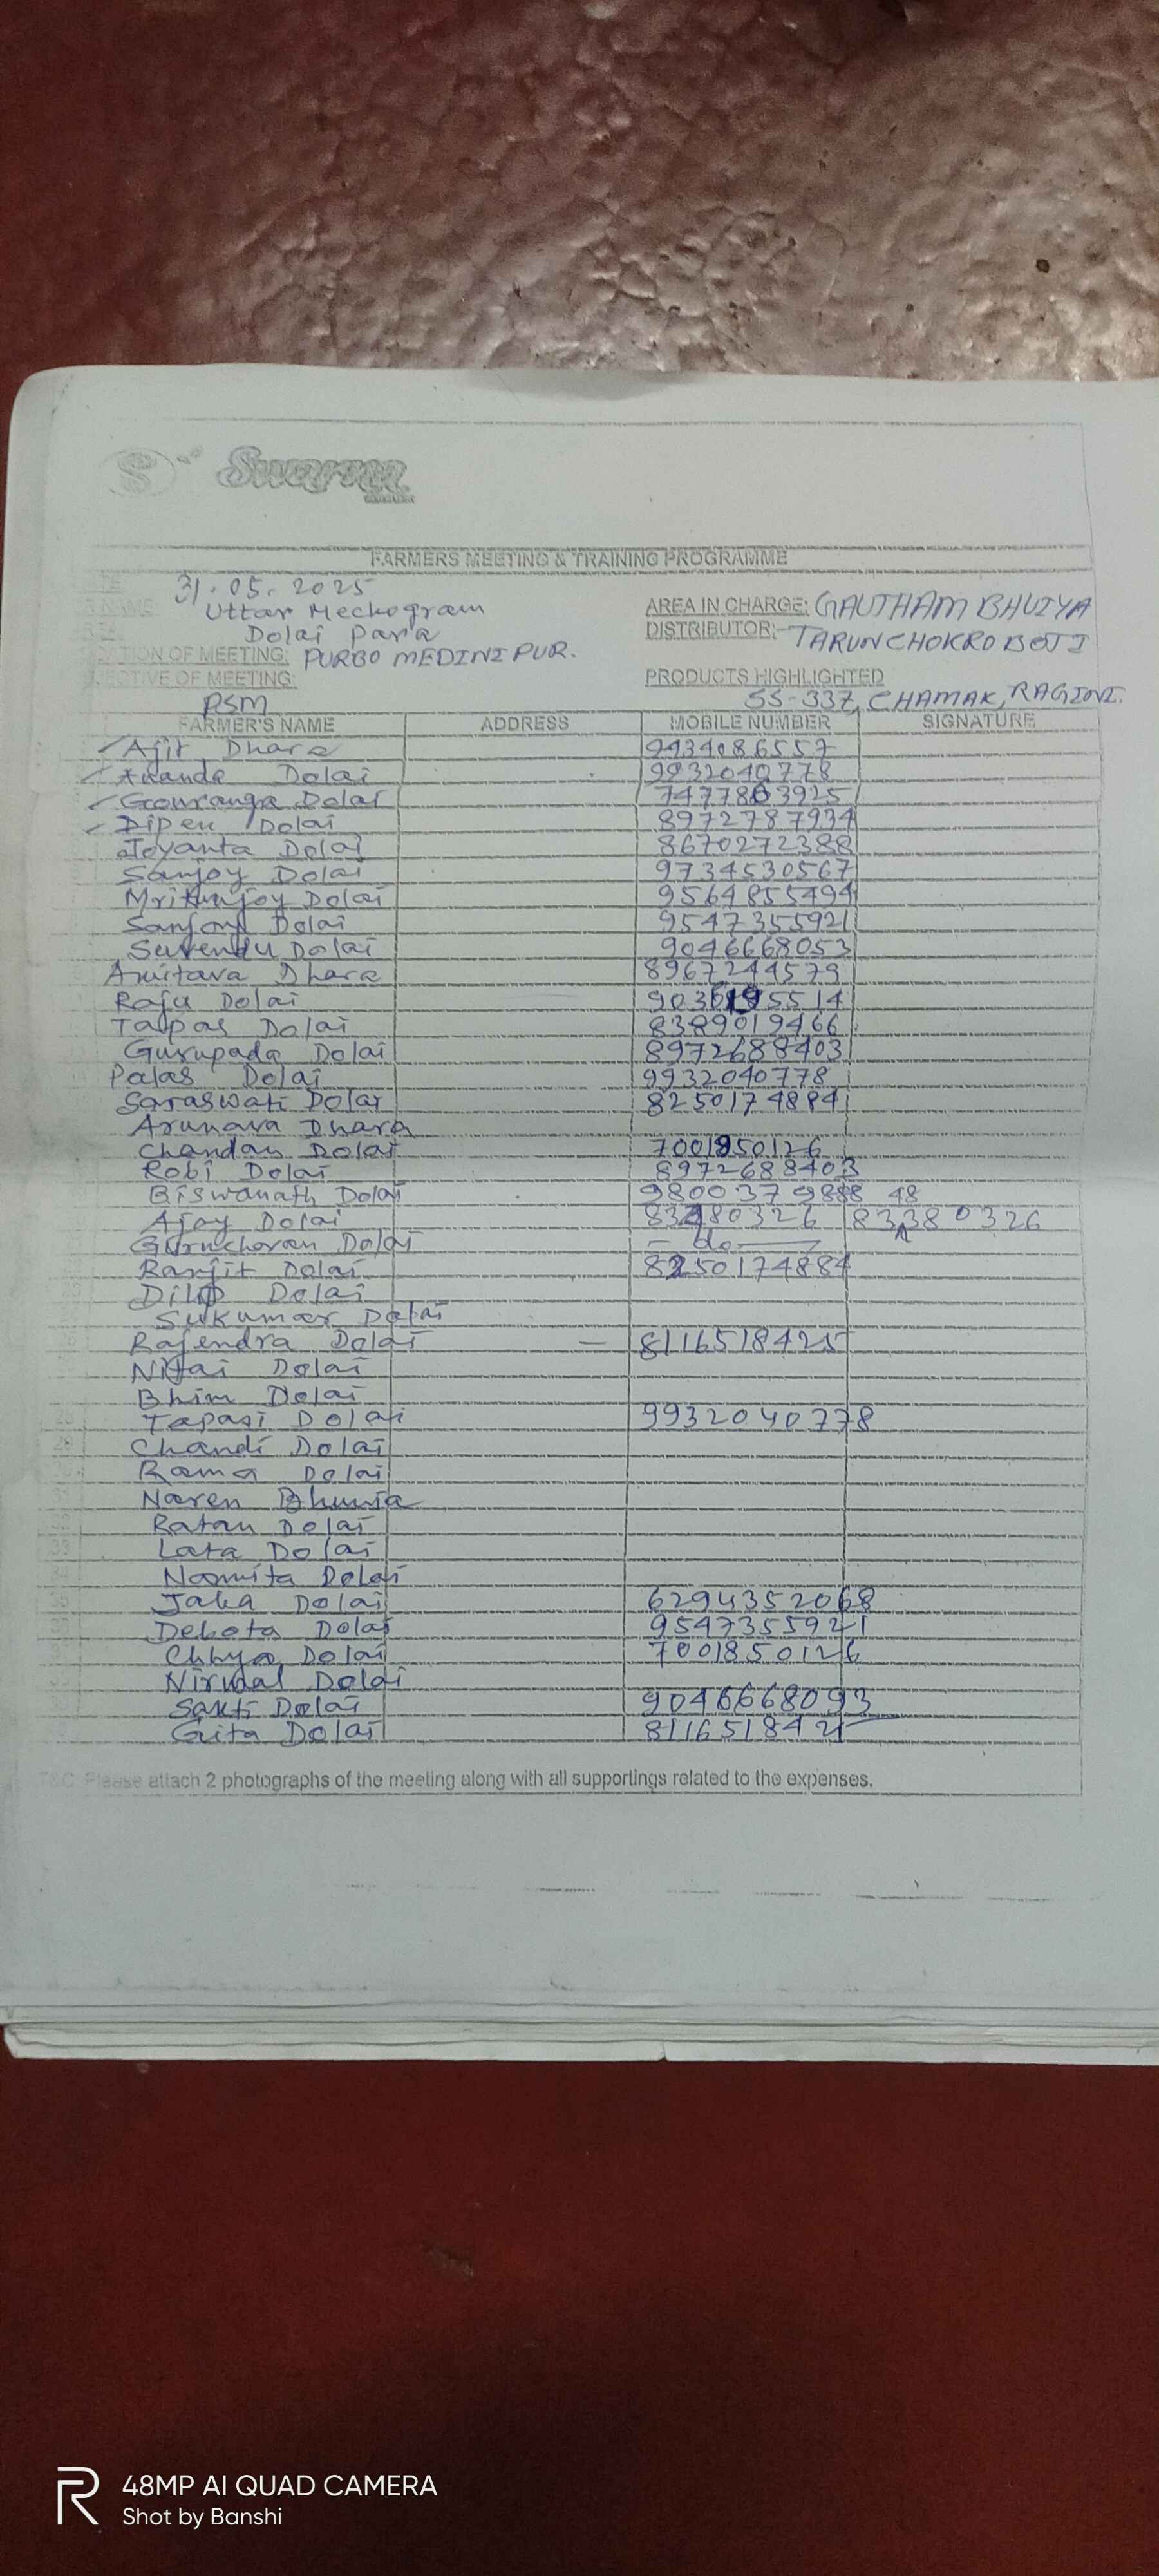 S Swarna
FARMERS MEETING & TRAINING PROGRAMME
31.05.2025
NAME: Uttar Mechogram
AREA IN CHARGE: GAUTHAM BHUIYA
Dolai Para
DISTRIBUTOR:- TARUN CHOKROBOTI
TION OF MEETING: PURBO MEDINIPUR.
ECTIVE OF MEETING:
PRODUCTS HIGHLIGHTED
PSM
SS-337, CHAMAK, RAGINI.
FARMER'S NAME ADDRESS MOBILE NUMBER SIGNATURE
Ajit Dhara 9934086557
Ananda Dolai 9932040778
Gouranga Dolai 7477863925
Dipen Dolai 8972787934
Joyanta Dolai 8670272388
Sanjoy Dolai 9734530567
Mritunjoy Dolai 9564855494
Sanjoy Dolai 9547355921
Suvendu Dolai 9046668053
Amitava Dhara 8967244579
Raju Dolai
Talpas Dolai 8389019466
Gurupada Dolai 8972688403
Palas Dolai 9932040778
Saraswati Dolai 8250174884
Arunava Dhara
Chandan Dolai 7001850126
Robi Dolai 8972688403
Biswanath Dolai 48
Ajoy Dolai 83380326
Gurucharan Dolai - do
Ranjit Dolai 8250174884
Dilip Dolai
Sukumar Dolai
Rajendra Dolai - 8116518425
Nitai Dolai
Bhim Dolai
Tapasi Dolai 9932040778
Chandi Dolai
Rama Dolai
Naren Bhunia
Ratan Dolai
Lata Dolai
Nomita Dolai
Jaba Dolai 6294352068
Debota Dolai 9547355921
Chhya Dolai 7001850126
Nirmal Dolai
Sakti Dolai 9046668093
Gita Dolai
T&C Please attach 2 photographs of the meeting along with all supportings related to the expenses.
R 48MP AI QUAD CAMERA
Shot by Banshi